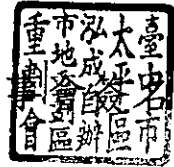 臺中市
太平區
泓成自辦
市地重劃區
重劃會